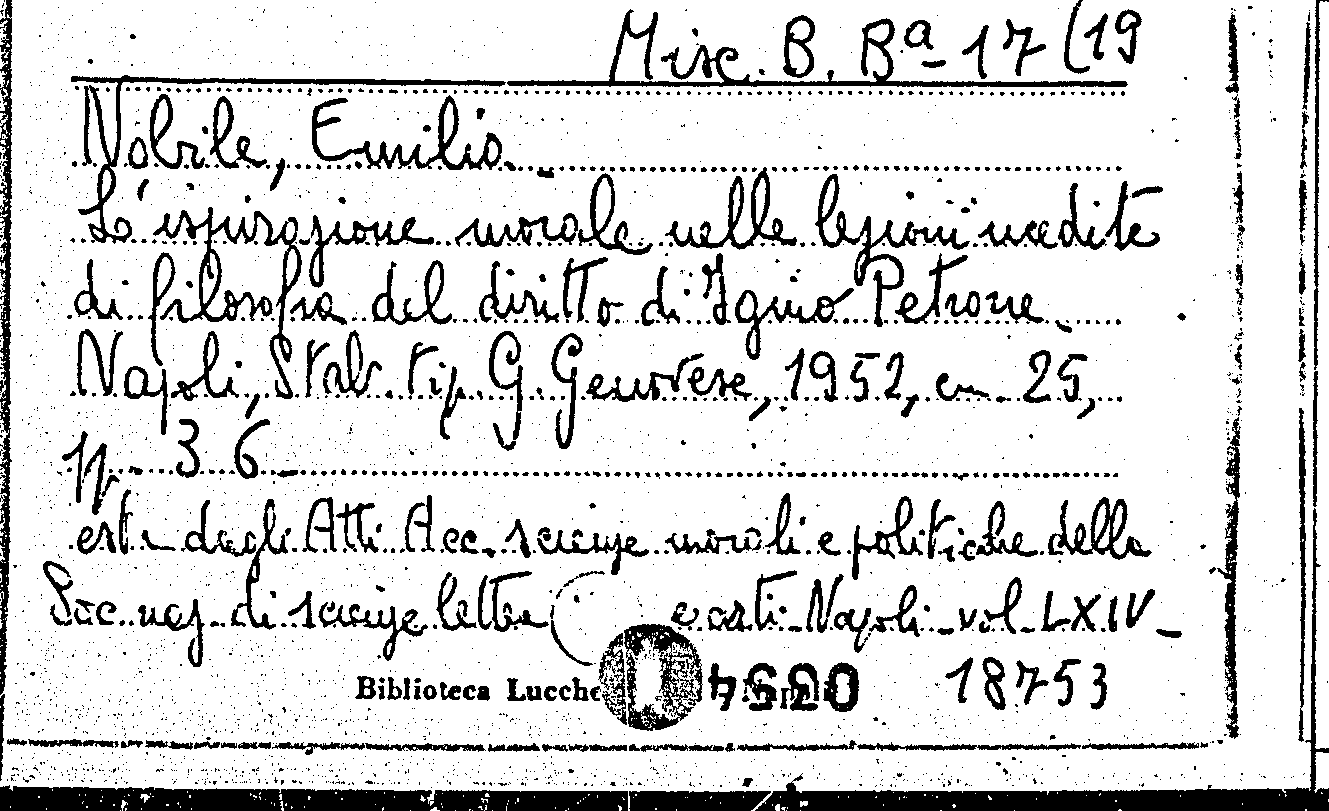 Misc. B. Bª 17 (19
Nobile, Emilio.
L'ispirazione morale nelle lezioni inedite
di filosofia del diritto di Igino Petrone
Napoli, Stab. tip. G. Genovese, 1952, cm. 25,
pp. 36
estr. dagli Atti Acc. scienze morali e politiche della
Soc. naz. di scienze lettere e arti Napoli vol. LXIV
Biblioteca Lucche
18753